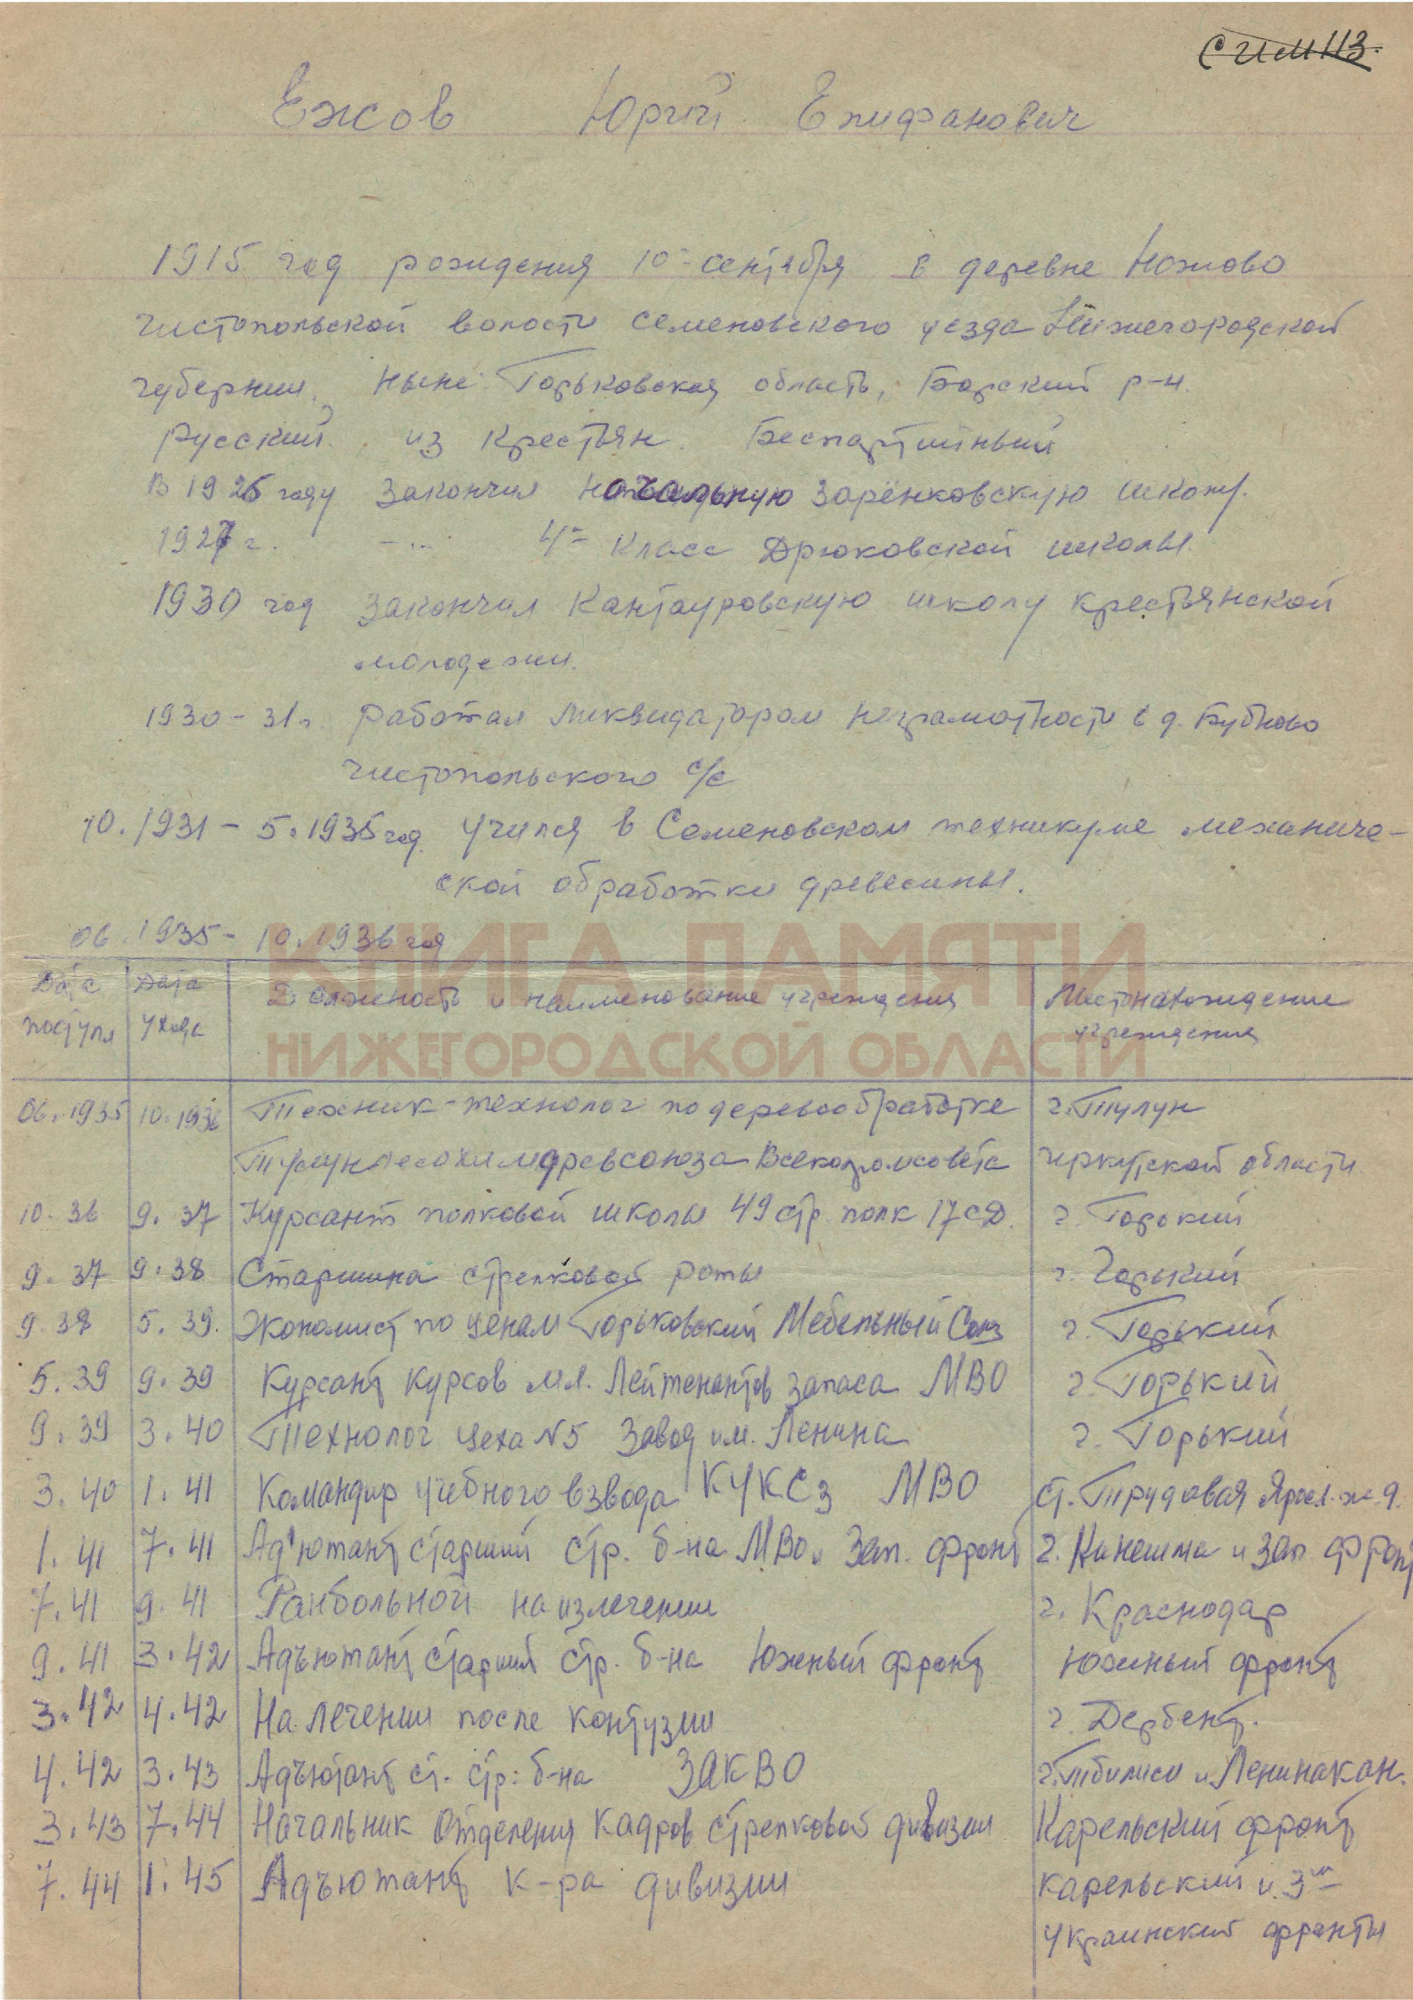 СИМ 113.
Ежов Юрий Епифанович
1915 год рождения 10го сентября в деревне Ножово
Чистопольской волости Семеновского уезда Нижегородской
губернии, ныне Горьковская область, Борский р-н.
Русский. из крестьян. Беспартийный
В 1926 году закончил начальную Заренковскую школу.
1927 г. -"- 4й класс Дрюковской школы.
1930 год закончил Кантауровскую школу крестьянской
молодежи.
1930-31 г. работал ликвидатором неграмотности в д. Бубново
Чистопольского с/с
10.1931 - 5.1935 год учился в Семеновском техникуме механиче-
ской обработки древесины.
06.1935 - 10.1936 год
КНИГА ПАМЯТИ
НИЖЕГОРОДСКОЙ ОБЛАСТИ
Дата поступл Дата ухода Должность и наименование учреждения Местонахождение учреждения
06.1935 10.1936 Техник-технолог по деревообработке г. Тулун
Тулунлесохимдревсоюза Всекопромсовета Иркутской области.
10.36 9.37 Курсант полковой школы 49 стр. полк 17 СД. г. Горький
9.37 9.38 Старшина стрелковой роты г. Горький
9.38 5.39. Экономист по ценам Горьковский Мебельный Союз г. Горький
5.39 9.39 Курсант курсов мл. Лейтенантов запаса МВО г. Горький
9.39 3.40 Технолог цеха N5 Завод им. Ленина г. Горький
3.40 1.41 Командир учебного взвода КУКСз МВО ст. Трудовая Яросл. ж.д.
1.41 7.41 Ад'ютант старший стр. б-на МВО и Зап. фронт г. Кинешма и Зап. фронт
7.41 9.41 Ранбольной на излечении г. Краснодар
9.41 3.42 Адъютант старший стр. б-на Южный фронт Южный фронт
3.42 4.42 На лечении после контузии г. Дербент.
4.42 3.43 Адъютант ст. стр. б-на ЗАКВО г. Тбилиси и Ленинакан.
3.43 7.44 Начальник Отделения Кадров стрелковой дивизии Карельский фронт
7.44 1.45 Адъютант к-ра дивизии Карельский и 3ий
Украинский фронты